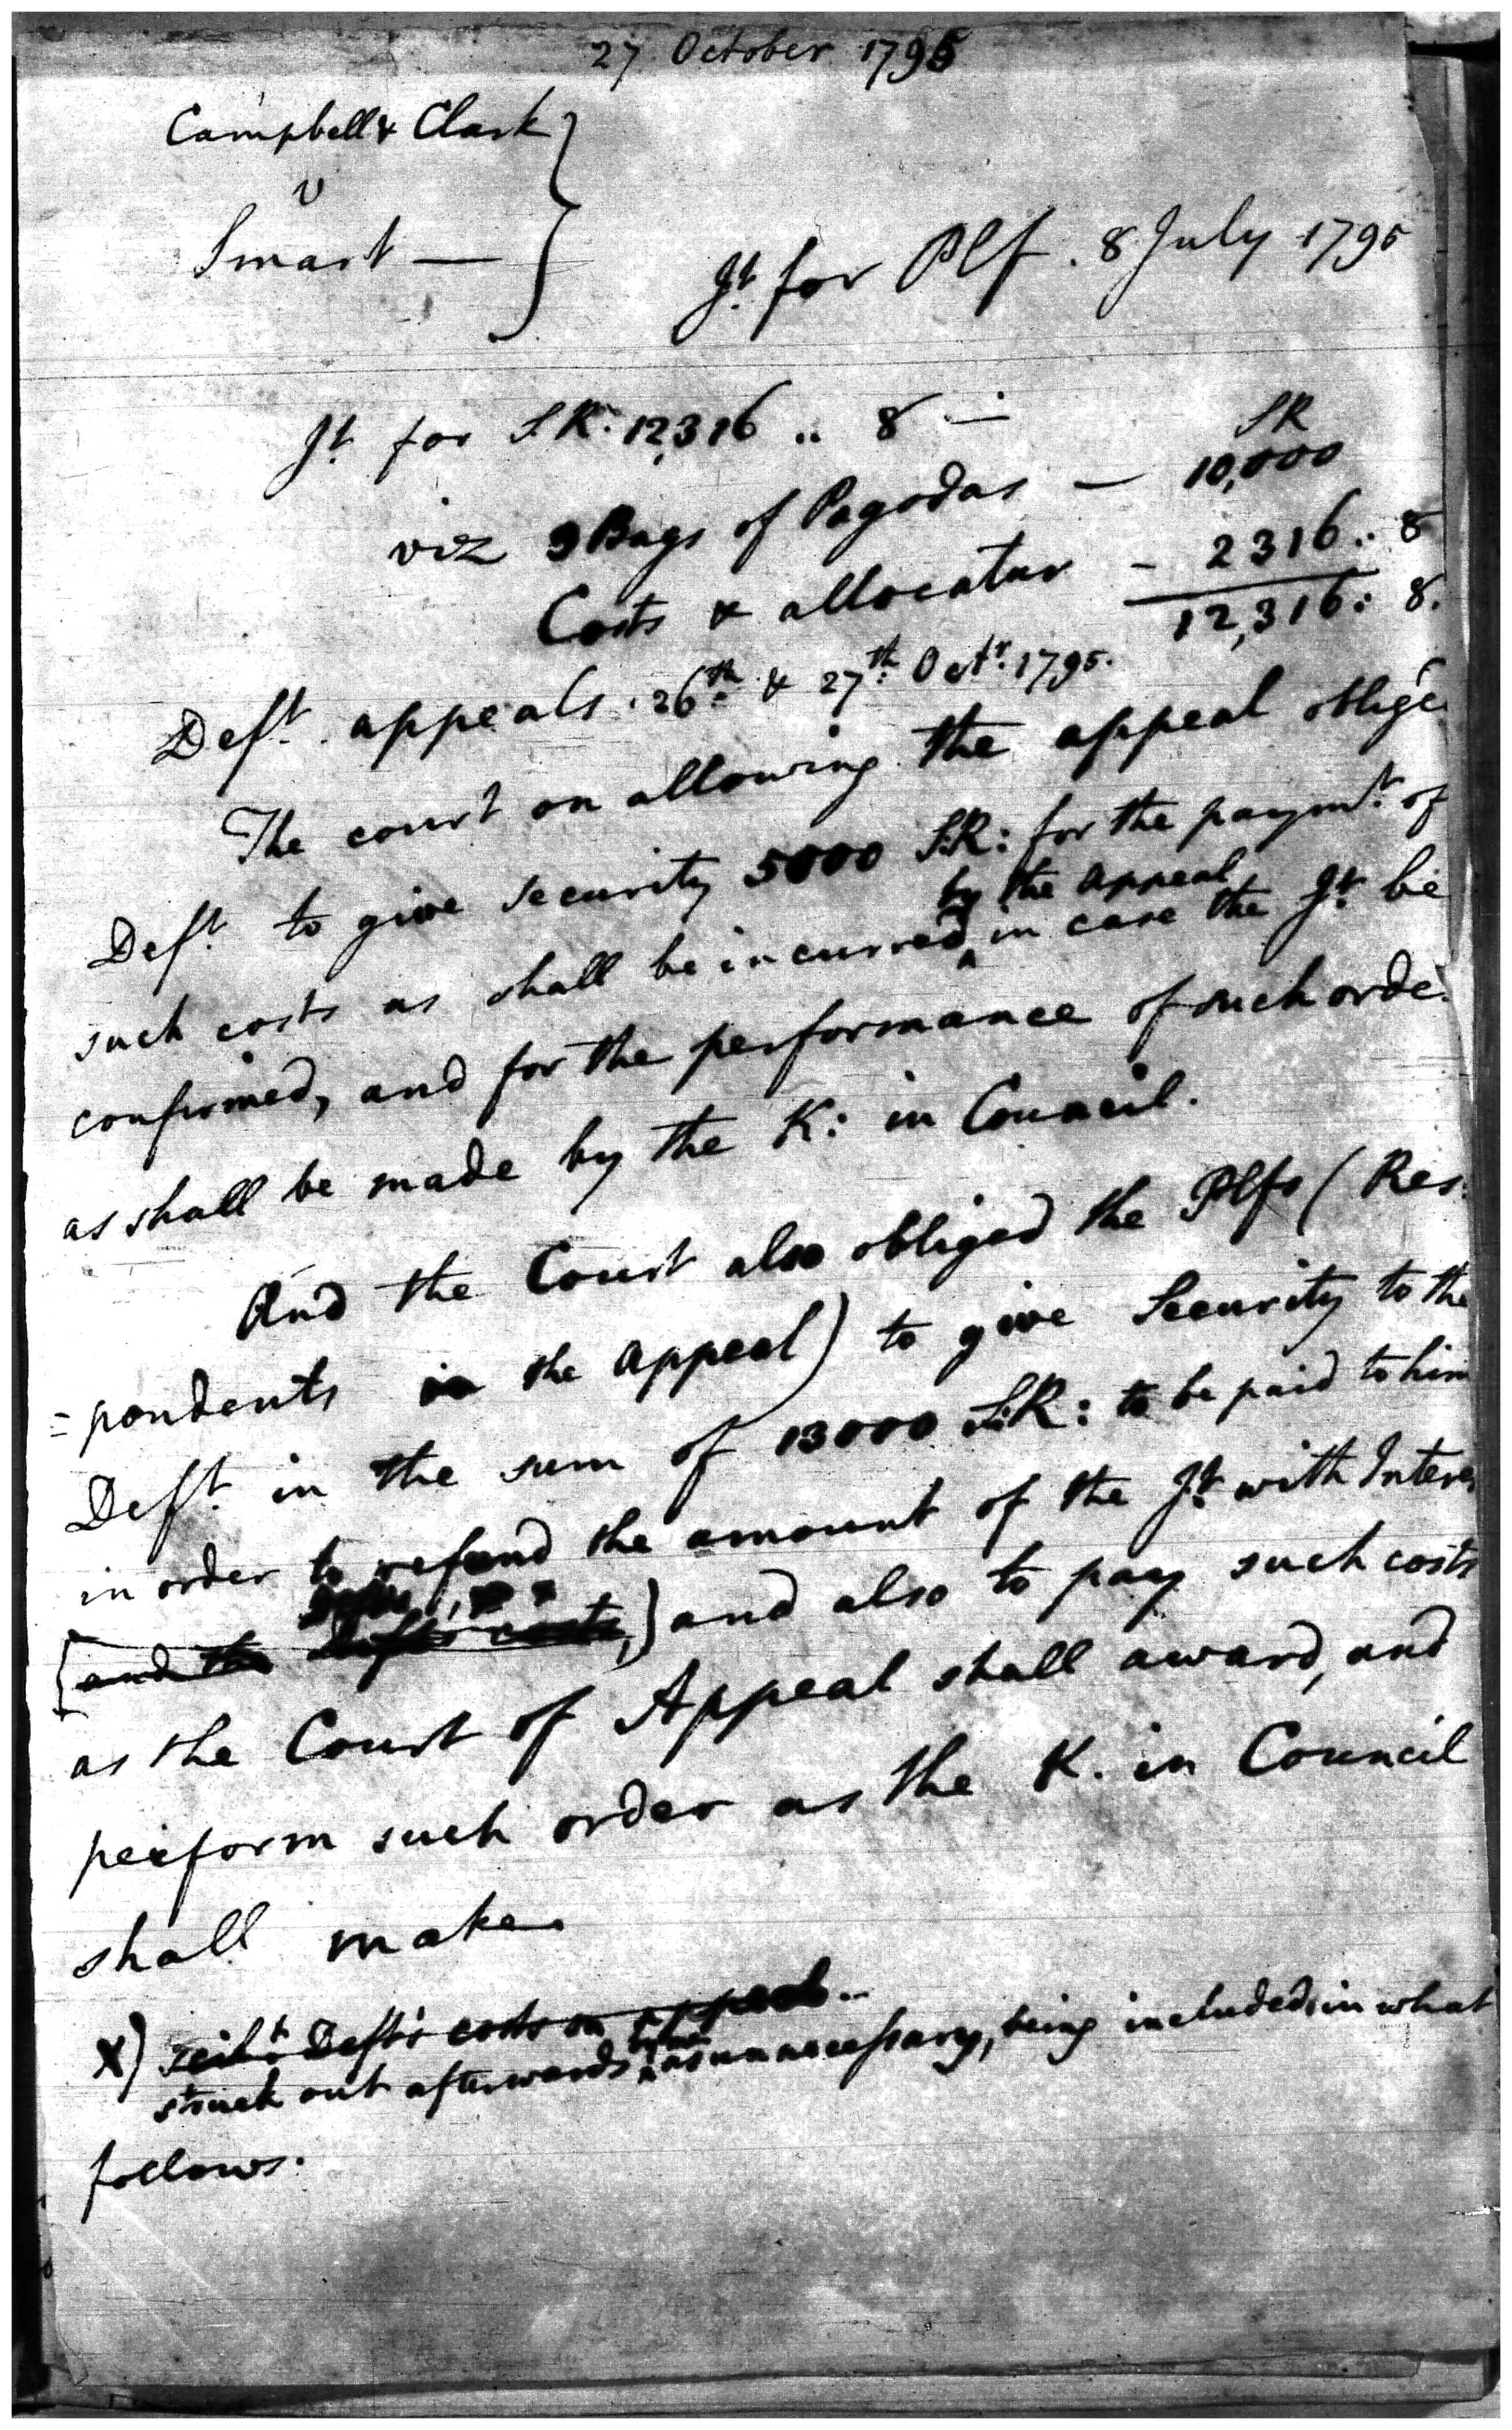 27 October 1795
Campbell & Clark
v
Smart —
Jt. for Plf. 8 July 1795
Jt. for S.R: 12,316 .. 8 —
SR
viz 9 Bags of Pagodas — 10,000
Costs & allocatur - 2316 .. 8
12,316: 8.
Deft. appeals. 26th. & 27th. Octr. 1795.
The court on allowing the appeal oblige
Deft. to give security 5000 S.R: for the paymt. of
by the appeal
such costs as shall be incurred ^ in case the Jt. be
confirmed, and for the performance of such orde
as shall be made by the K: in Council.
And the Court also obliged the Plfs (Res:
=pondents in the appeal) to give Security to the
Deft. in the sum of 13000 S.R: to be paid to him
in order to refund the amount of the Jt. with Interes
[and the Defts costs,] and also to pay such costs
as the Court of Appeal shall award, and
perform such order as the K. in Council
shall make.
X) scilt. Deft's costs on appeal..
struck out afterwards ^ as unnecessary, being included in what
follows.